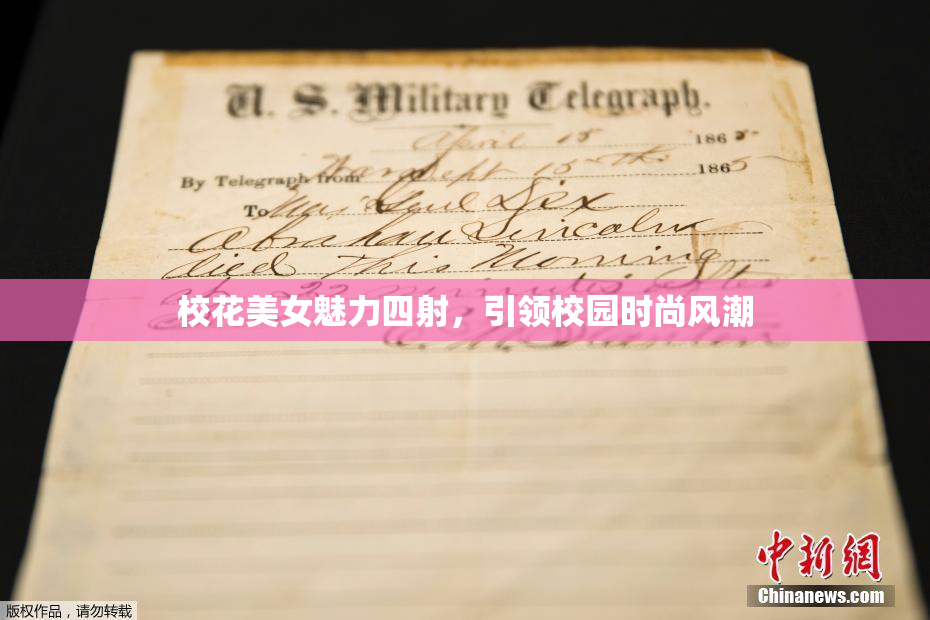 U. S. Military Telegraph.
April 15 1865
By Telegraph from War Dept 15th 1865
To Maj Genl Dix
Abraham Lincoln
died This Morning
at 22 minutes after
校花美女魅力四射，引领校园时尚风潮
中新网
Chinanews.com
版权作品，请勿转载